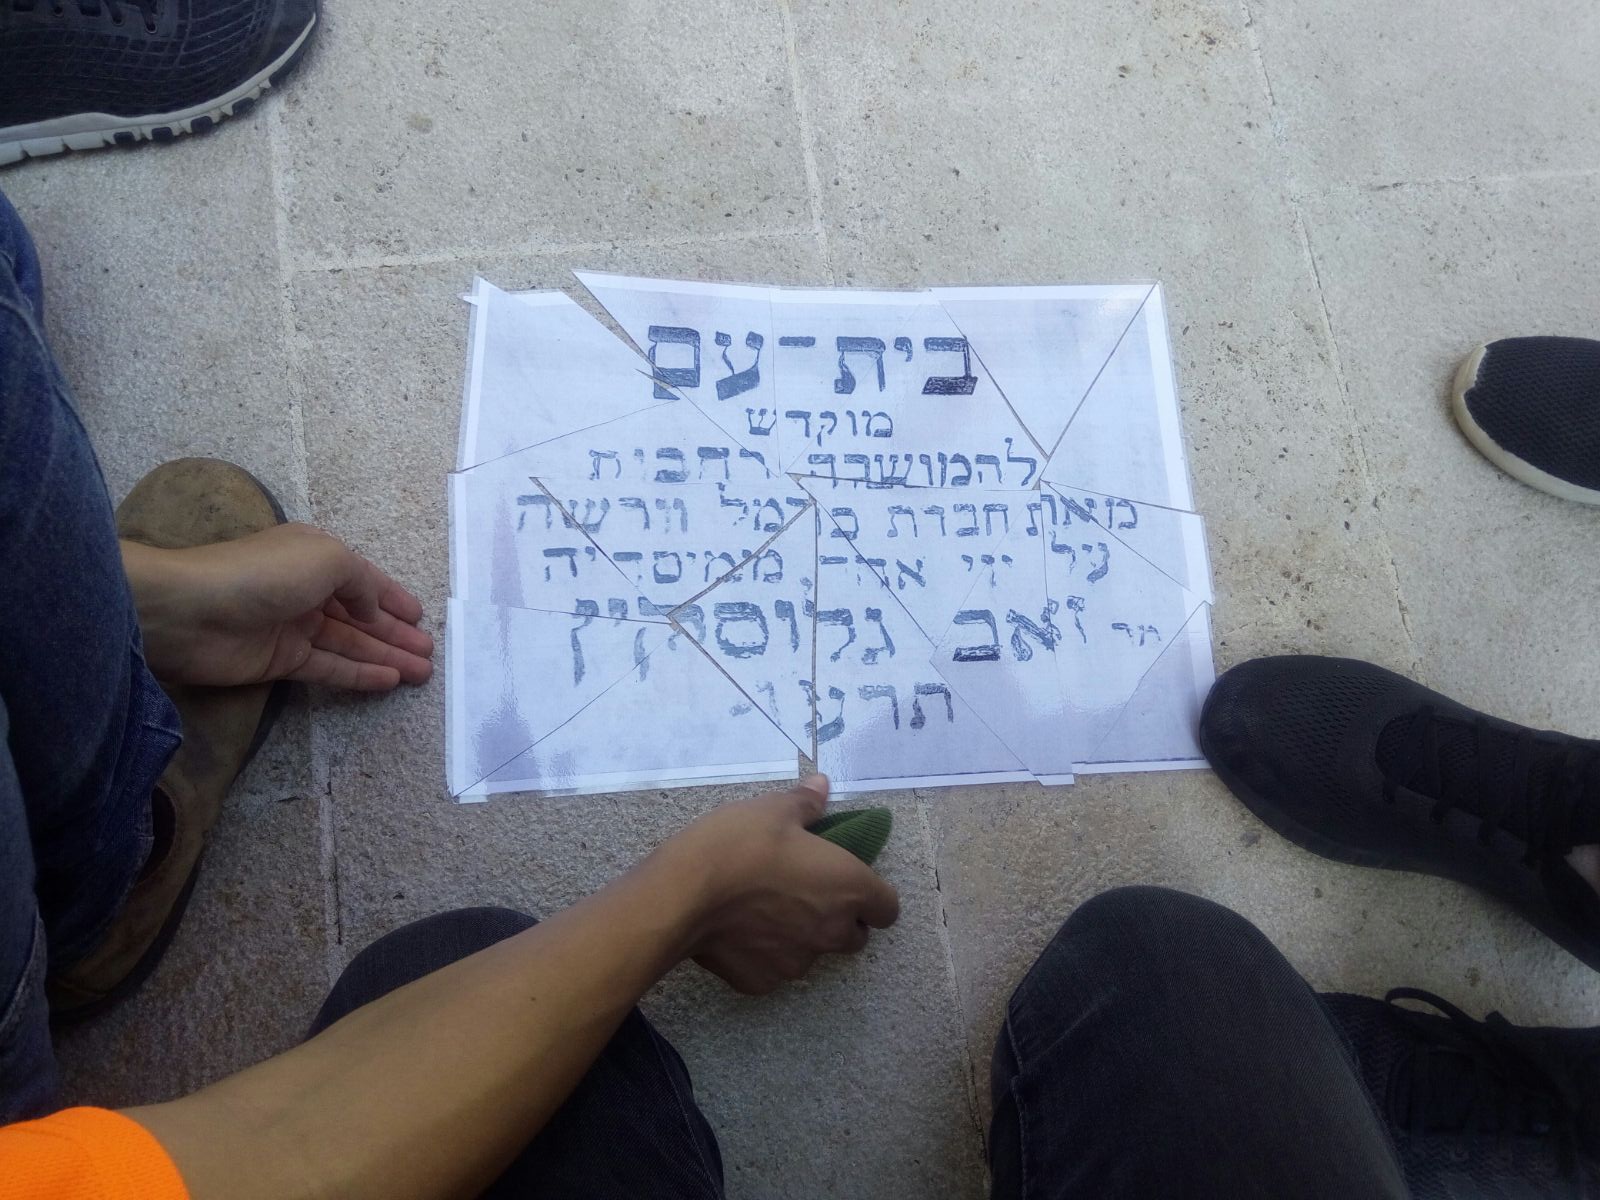 בית-עם
מוקדש
להמושבה רחבות
מאת חברת כרמל וורשה
על ידי אה", ממיסדיה
מר זאב גלוסקין
תרע"